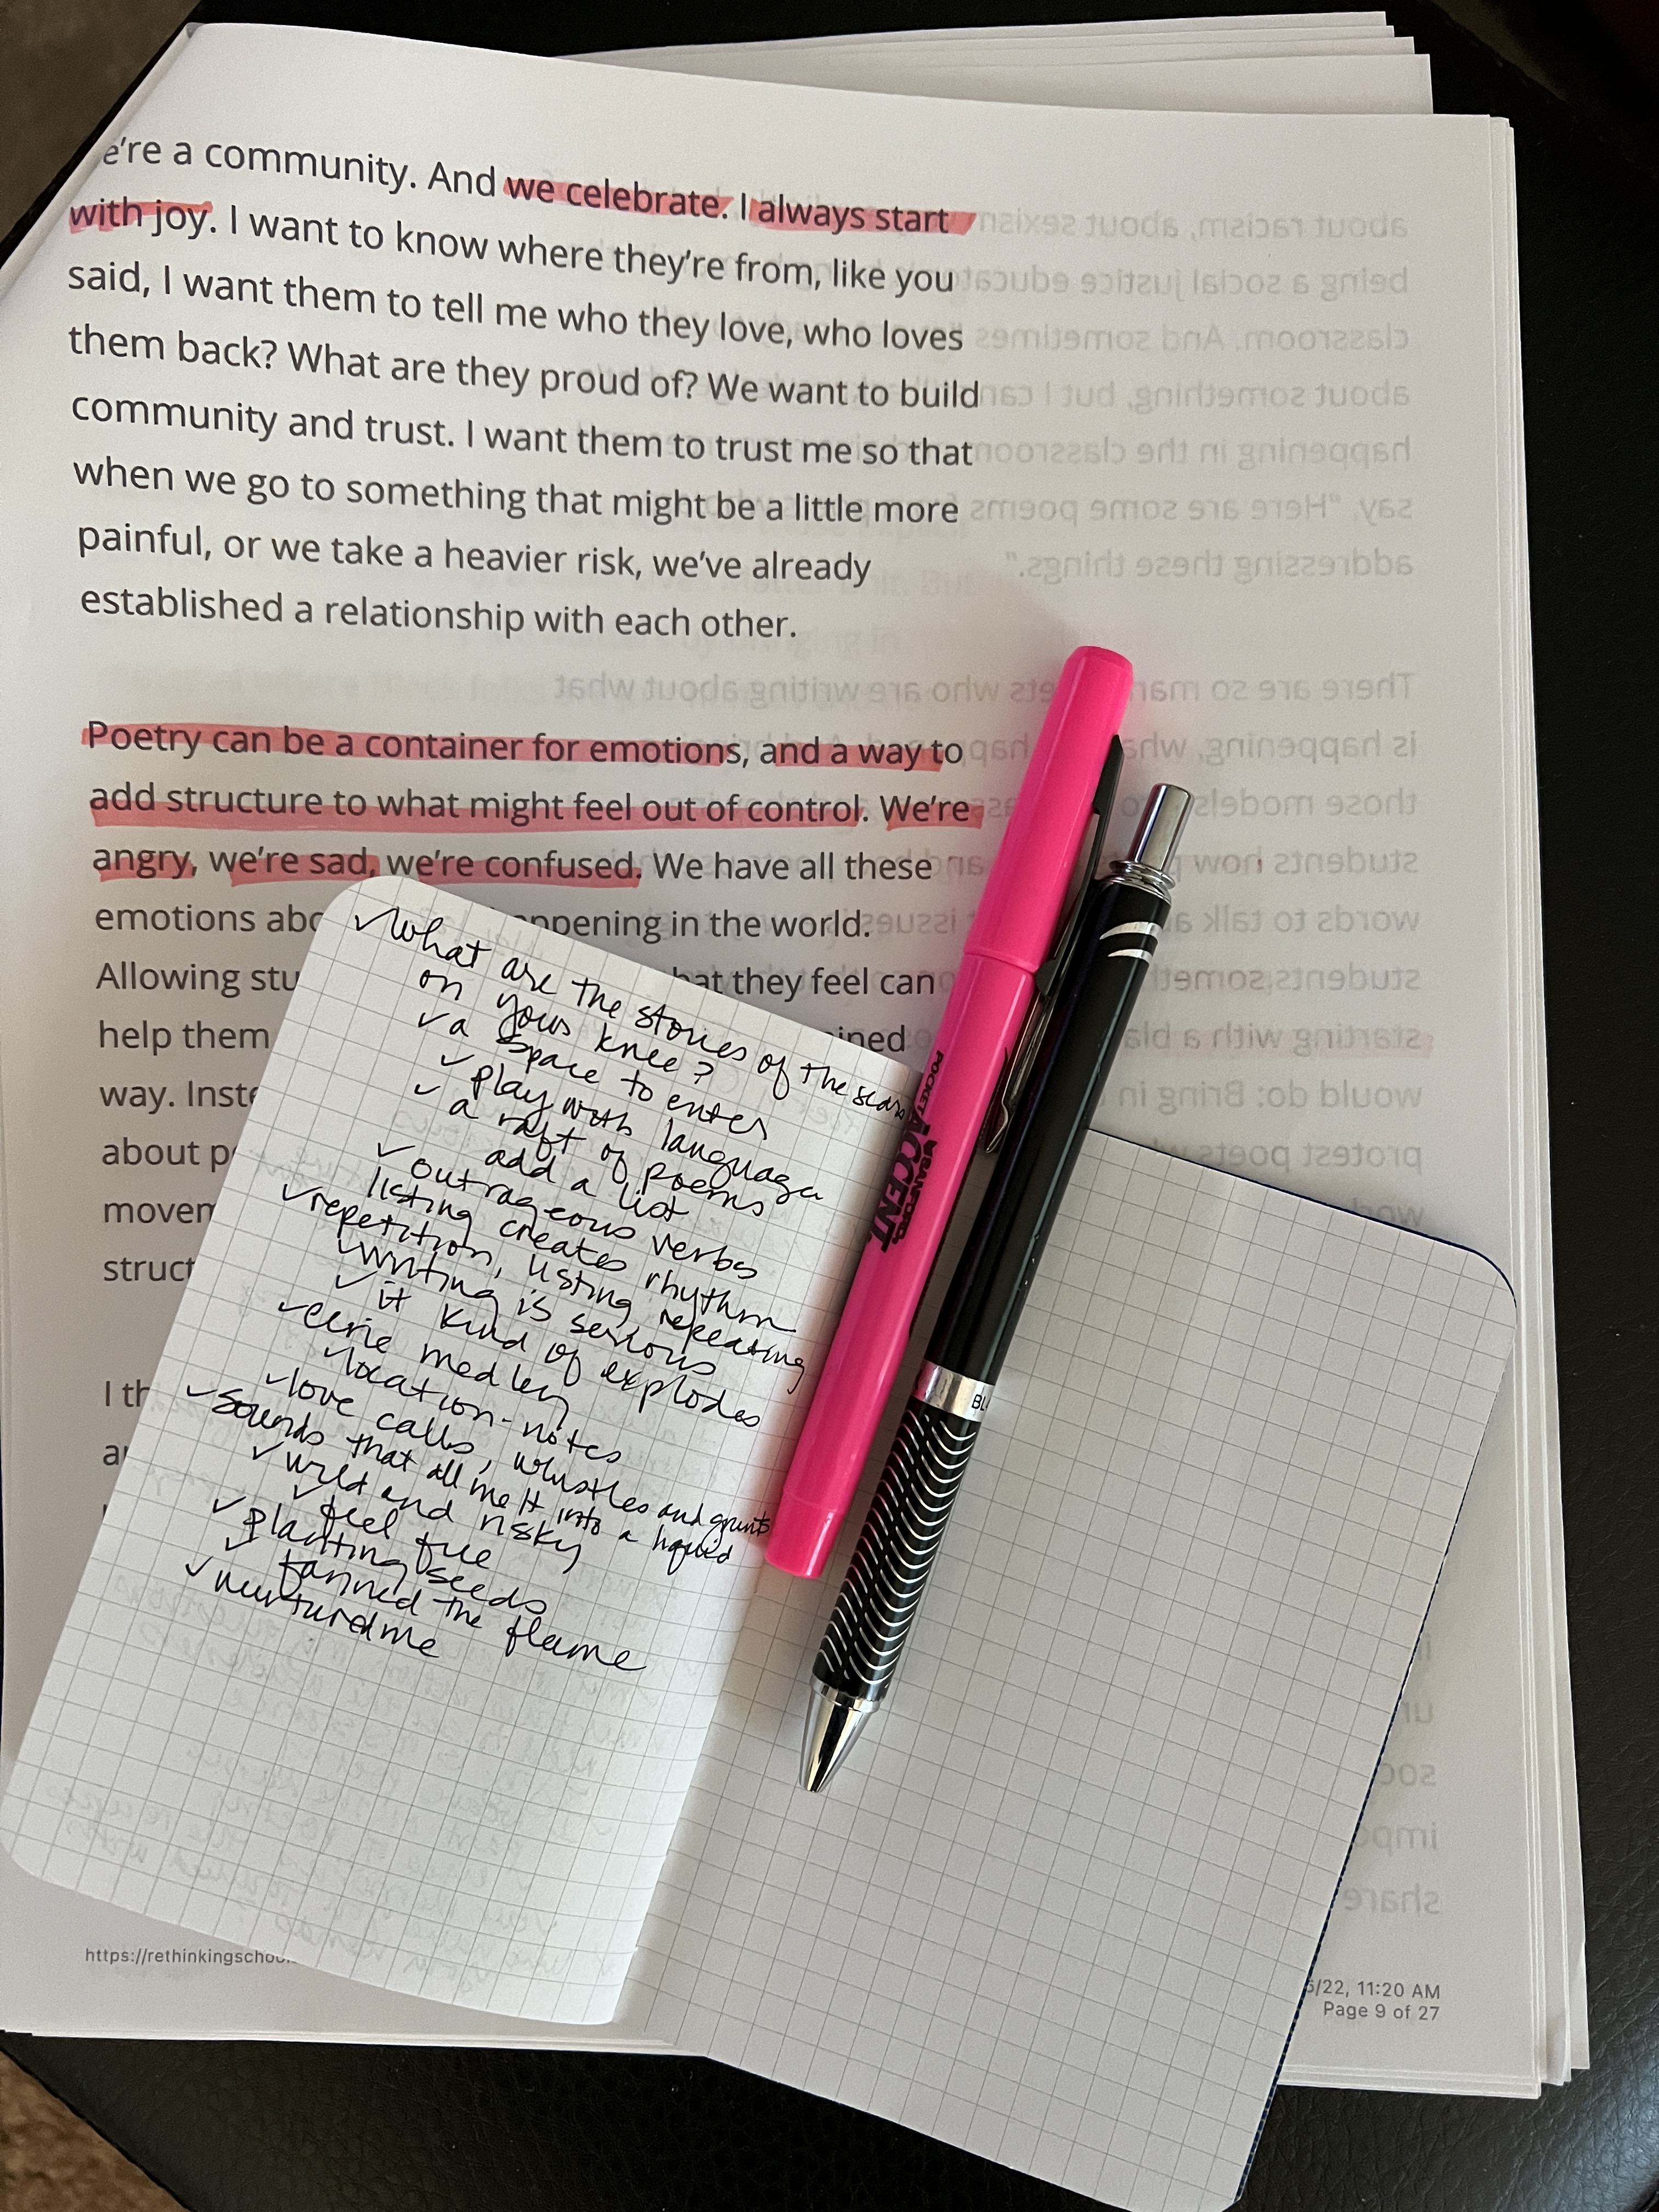 e're a community. And we celebrate. I always start
with joy. I want to know where they're from, like you
said, I want them to tell me who they love, who loves
them back? What are they proud of? We want to build
community and trust. I want them to trust me so that
when we go to something that might be a little more
painful, or we take a heavier risk, we've already
established a relationship with each other.
Poetry can be a container for emotions, and a way to
add structure to what might feel out of control. We're
angry, we're sad, we're confused. We have all these
emotions abo ppening in the world.
Allowing stu hat they feel can
help them ined
way. Inste
about p
movem
struct
I th
a
✓What are the stories of the scars
on your knee?
✓ a space to enter
✓ play with language
✓ a raft of poems
add a list
✓ outrageous verbs
listing creates rhythm
✓ repetition, listing repeating
✓ writing is serious
✓ it kind of explodes
✓ eerie medley
✓ location-notes
✓ love calls, whistles and grunts
✓ sounds that all melt into a liquid
✓ wild and risky
✓ feel free
✓ planting seeds
✓ fanned the flame
✓ nurtured me
POCKET ACCENT
SANFORD
BL
https://rethinkingschool
5/22, 11:20 AM
Page 9 of 27